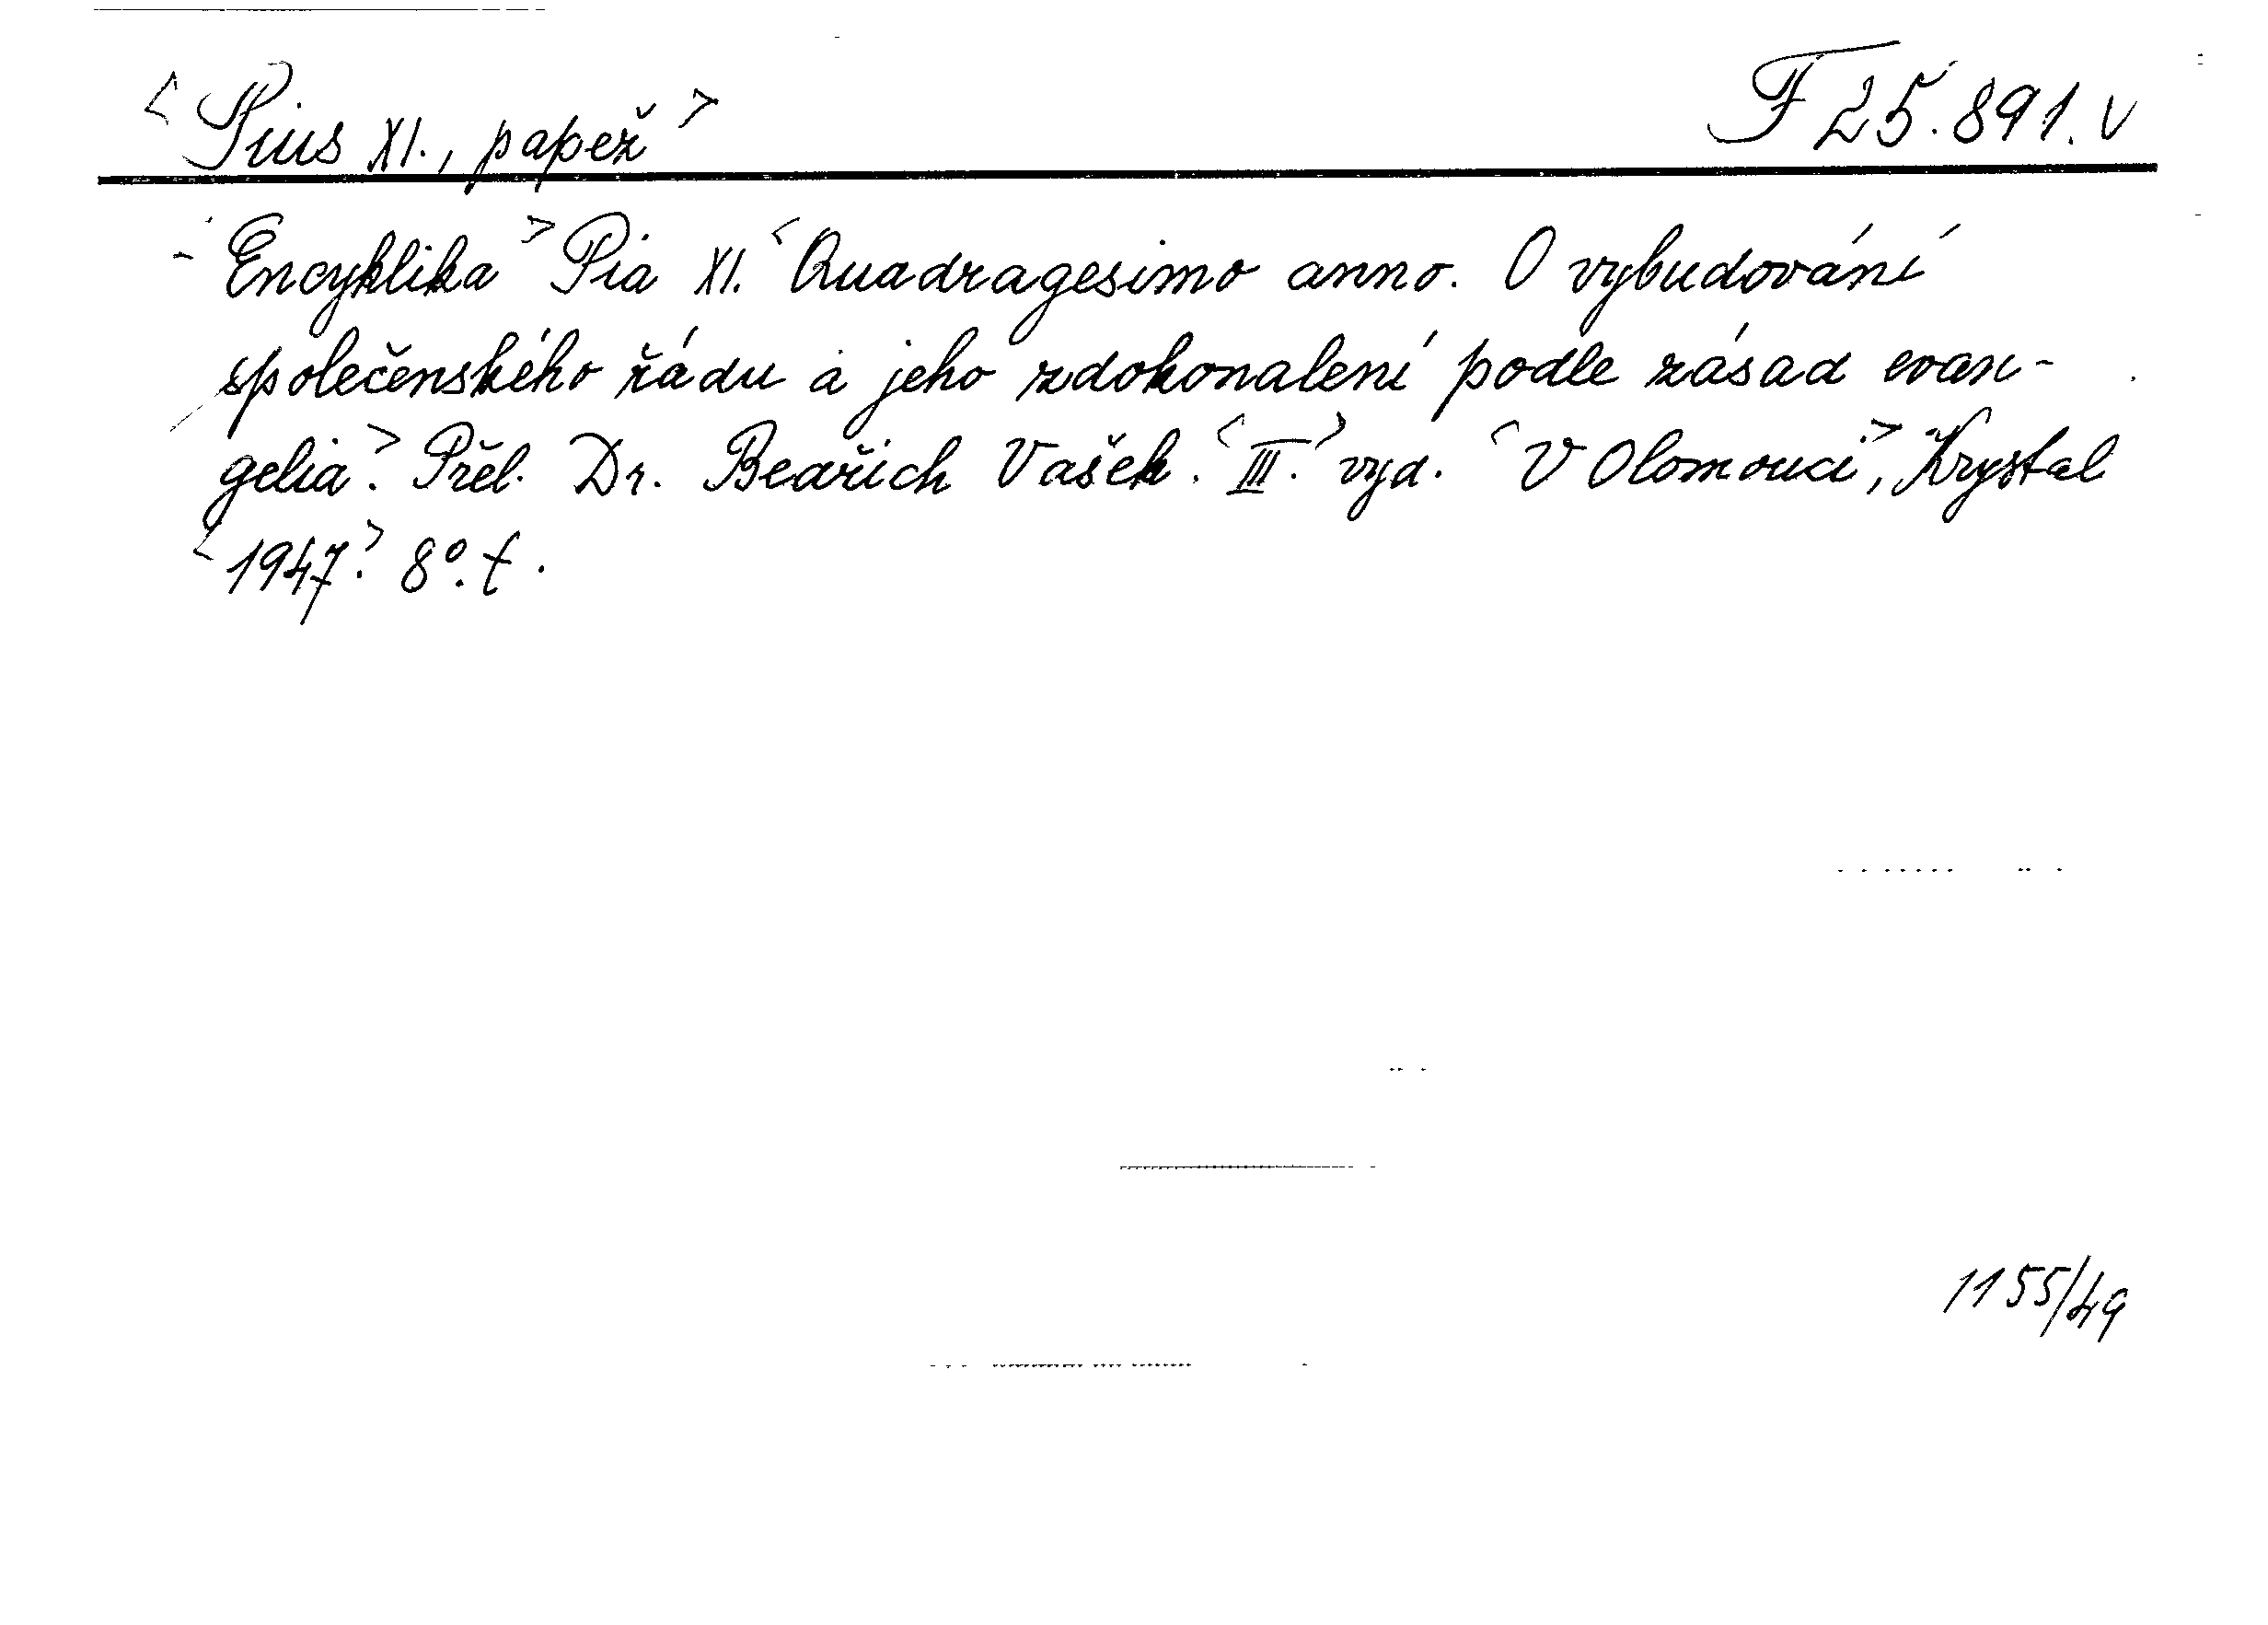 <Pius XI., papež> F 25.891. v
<Encyklika> Pia XI. <Quadragesimo anno. O vybudování
společenského řádu a jeho zdokonalení podle zásad evan-
gelia>. Přel. Dr. Bedřich Vašek. <III.> vyd. <V Olomouci>, Krystal
<1947>. 8°. f.
1155/49